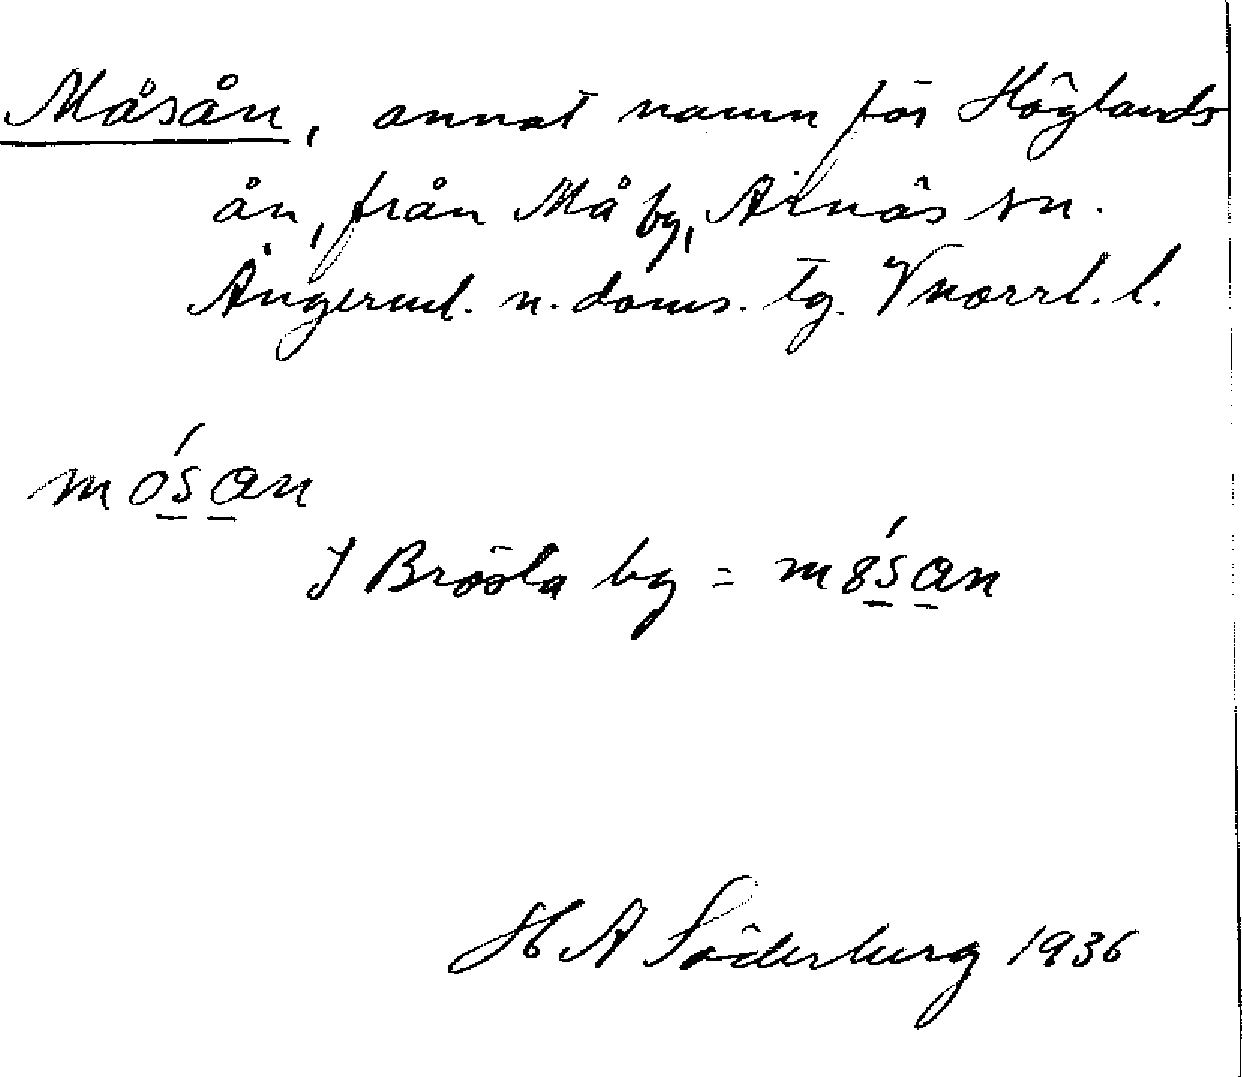 Måsån, annat namn för Höglands
ån, från Må by, Arnäs sn.
Ångerml. n. doms. tg. Vnorrl. l.
mósan
I Brösta by = mósan
H A Söderberg 1936